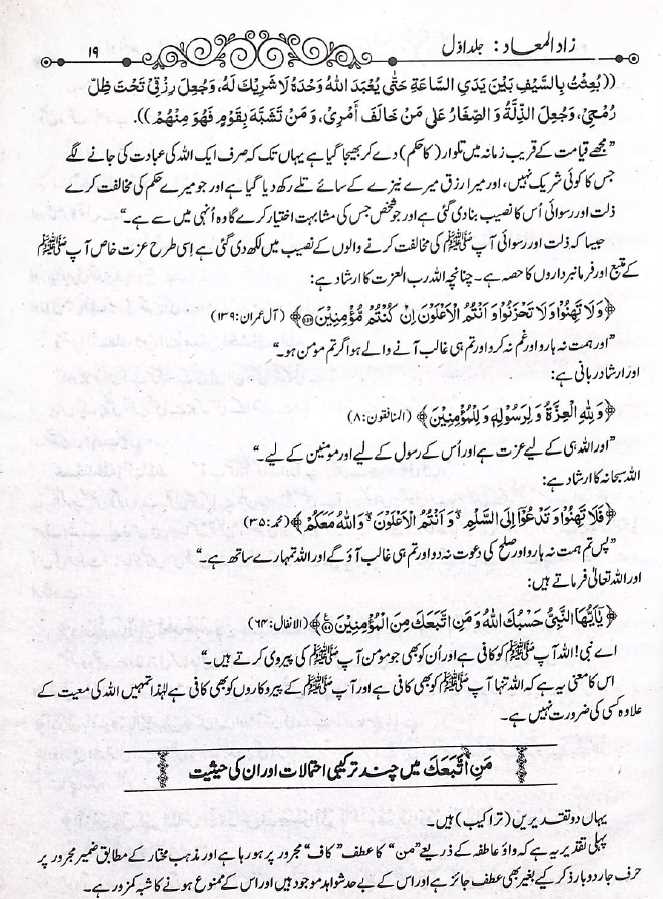 زاد المعاد: جلد اوّل ۱۹
((بُعِثْتُ بِالسَّيْفِ بَيْنَ يَدَيِ السَّاعَةِ حَتَّى يُعْبَدَ اللّٰهُ وَحْدَهٗ لَا شَرِيْكَ لَهٗ، وَجُعِلَ رِزْقِيْ تَحْتَ ظِلِّ
رُمْحِيْ، وَجُعِلَ الذِّلَّةُ وَالصِّغَارُ عَلٰى مَنْ خَالَفَ أَمْرِيْ، وَمَنْ تَشَبَّهَ بِقَوْمٍ فَهُوَ مِنْهُمْ)).
”مجھے قیامت کے قریب زمانہ میں تلوار (کا حکم) دے کر بھیجا گیا ہے یہاں تک کہ صرف ایک اللہ کی عبادت کی جانے لگے
جس کا کوئی شریک نہیں، اور میرا رزق میرے نیزے کے سائے تلے رکھ دیا گیا ہے اور جو میرے حکم کی مخالفت کرے
ذلت اور رسوائی اُس کا نصیب بنا دی گئی ہے اور جو شخص جس کی مشابہت اختیار کرے گا وہ اُنہی میں سے ہے۔“
جیسا کہ ذلت اور رسوائی آپ ﷺ کی مخالفت کرنے والوں کے نصیب میں لکھ دی گئی ہے اِسی طرح عزت خاص آپ ﷺ
کے متبع اور فرمانبرداروں کا حصہ ہے۔ چنانچہ اللہ رب العزت کا ارشاد ہے:
﴿وَلَا تَهِنُوْا وَلَا تَحْزَنُوْا وَاَنْتُمُ الْاَعْلَوْنَ اِنْ كُنْتُمْ مُّؤْمِنِيْنَ ۝۱۳۹﴾ (آل عمران: ۱۳۹)
”اور ہمت نہ ہارو اور غم نہ کرو اور تم ہی غالب آنے والے ہو اگر تم مومن ہو۔“
اور ارشاد ربانی ہے:
﴿وَلِلّٰهِ الْعِزَّةُ وَلِرَسُوْلِهٖ وَلِلْمُؤْمِنِيْنَ﴾ (المنافقون: ۸)
”اور اللہ ہی کے لیے عزت ہے اور اُس کے رسول کے لیے اور مومنین کے لیے۔“
اللہ سبحانہ کا ارشاد ہے:
﴿فَلَا تَهِنُوْا وَتَدْعُوْۤا اِلَى السَّلْمِ ۖ وَاَنْتُمُ الْاَعْلَوْنَ ۖ وَاللّٰهُ مَعَكُمْ﴾ (محمد: ۳۵)
”پس تم ہمت نہ ہارو اور صلح کی دعوت نہ دو اور تم ہی غالب آؤ گے اور اللہ تمہارے ساتھ ہے۔“
اور اللہ تعالیٰ فرماتے ہیں:
﴿يٰۤاَيُّهَا النَّبِيُّ حَسْبُكَ اللّٰهُ وَمَنِ اتَّبَعَكَ مِنَ الْمُؤْمِنِيْنَ ۝۶۴﴾ (الانفال: ۶۴)
اے نبی! اللہ آپ ﷺ کو کافی ہے اور اُن کو بھی جو مومن آپ ﷺ کی پیروی کرتے ہیں۔“
اس کا معنی یہ ہے کہ اللہ تنہا آپ ﷺ کو بھی کافی ہے اور آپ ﷺ کے پیروکاروں کو بھی کافی ہے لہٰذا تمہیں اللہ کی معیت کے
علاوہ کسی کی ضرورت نہیں ہے۔
مَنِ اتَّبَعَكَ میں چند ترکیبی احتمالات اور ان کی حیثیت
یہاں دو تقدیریں (تراکیب) ہیں۔
پہلی تقدیر یہ ہے کہ واؤ عاطفہ کے ذریعے ”من“ کا عطف ”کاف“ مجرور پر ہو رہا ہے اور مذہب مختار کے مطابق ضمیر مجرور پر
حرف جار دوبارہ ذکر کیے بغیر بھی عطف جائز ہے اور اس کے بے حد شواہد موجود ہیں اور اس کے ممنوع ہونے کا شبہ کمزور ہے۔